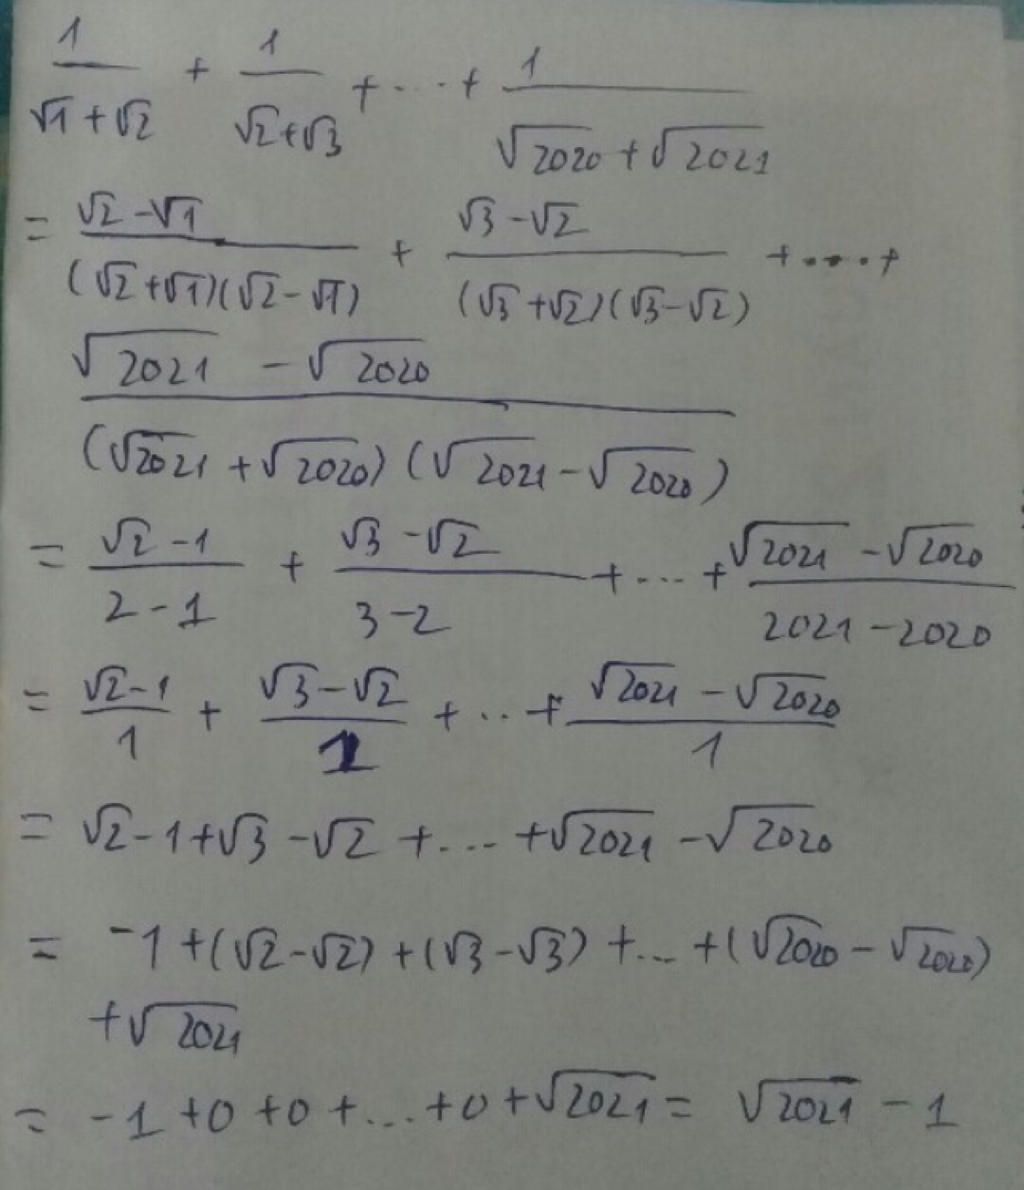 1/(√1+√2) + 1/(√2+√3) + ... + 1/(√2020+√2021)
= (√2-√1)/((√2+√1)(√2-√1)) + (√3-√2)/((√3+√2)(√3-√2)) + .... +
(√2021-√2020)/((√2021+√2020)(√2021-√2020))
= (√2-1)/(2-1) + (√3-√2)/(3-2) + ... + (√2021-√2020)/(2021-2020)
= (√2-1)/1 + (√3-√2)/1 + ... + (√2021-√2020)/1
= √2-1+√3-√2+...+√2021-√2020
= -1+(√2-√2)+(√3-√3)+...+(√2020-√2020)
+√2021
= -1+0+0+...+0+√2021 = √2021-1